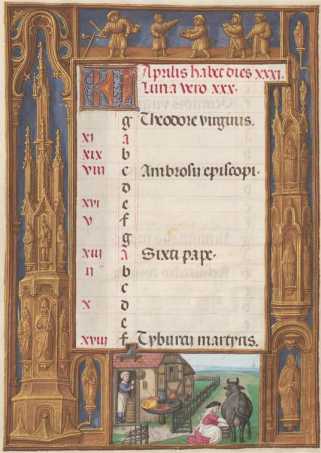 KL Aprilis habet dies xxxi.
Luna vero xxx.
g Theodore virginis.
xi a
xix b
viii c Ambrosii episcopi.
d
xvi e
v f
g
xiii a Sixti pape.
ii b
c
x d
e
xviii f Tyburcij martyris.